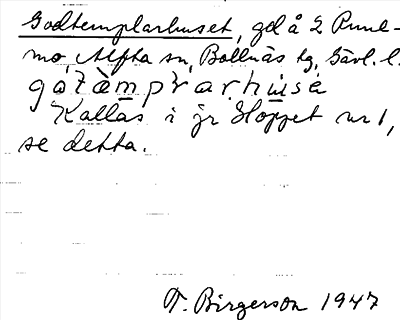 Godtemplarhuset, gd å 2 Rune-
mo, Alfta sn, Bollnäs tg, Gävl. l.
gótàmprarhúse
Kallas i jr Hoppet nr 1,
se detta.
T. Birgerson 1947